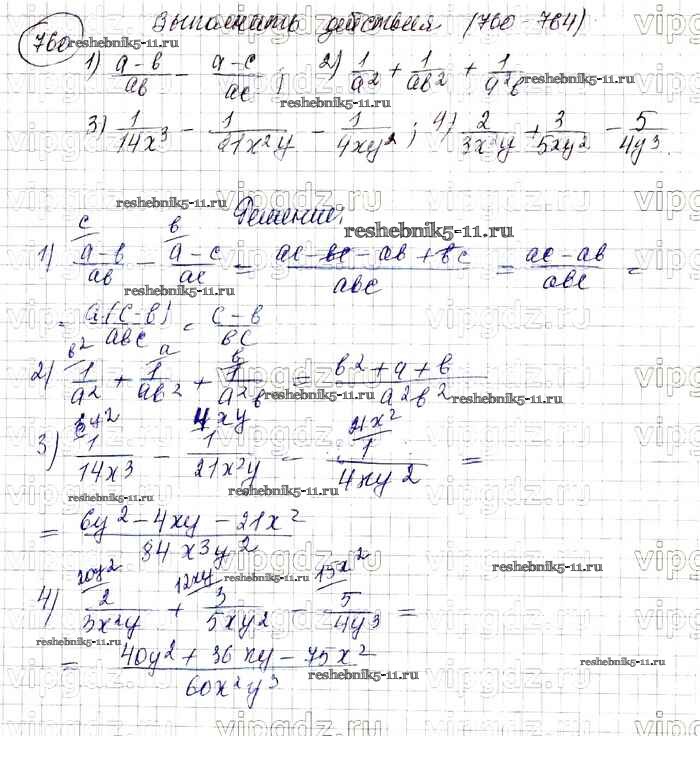 Выполнить действия (760-764)
760 1) (a-b)/ab - (a-c)/ac ; 2) 1/a² + 1/ab² + 1/a²b
3) 1/14x³ - 1/21x²y - 1/4xy² ; 4) 2/3x²y + 3/5xy² - 5/4y³
Решение:
1) (a-b)/ab - (a-c)/ac = (ac-bc-ab+bc)/abc = (ac-ab)/abc =
= a(c-b)/abc = (c-b)/bc
2) 1/a² + 1/ab² + 1/a²b = (b²+a+b)/a²b²
3) 1/14x³ - 1/21x²y - 1/4xy² =
= (6y²-4xy-21x²)/84x³y²
4) 2/3x²y + 3/5xy² - 5/4y³ =
= (40y²+36xy-75x²)/60x²y³
reshebnik5-11.ru
vipgdz.ru